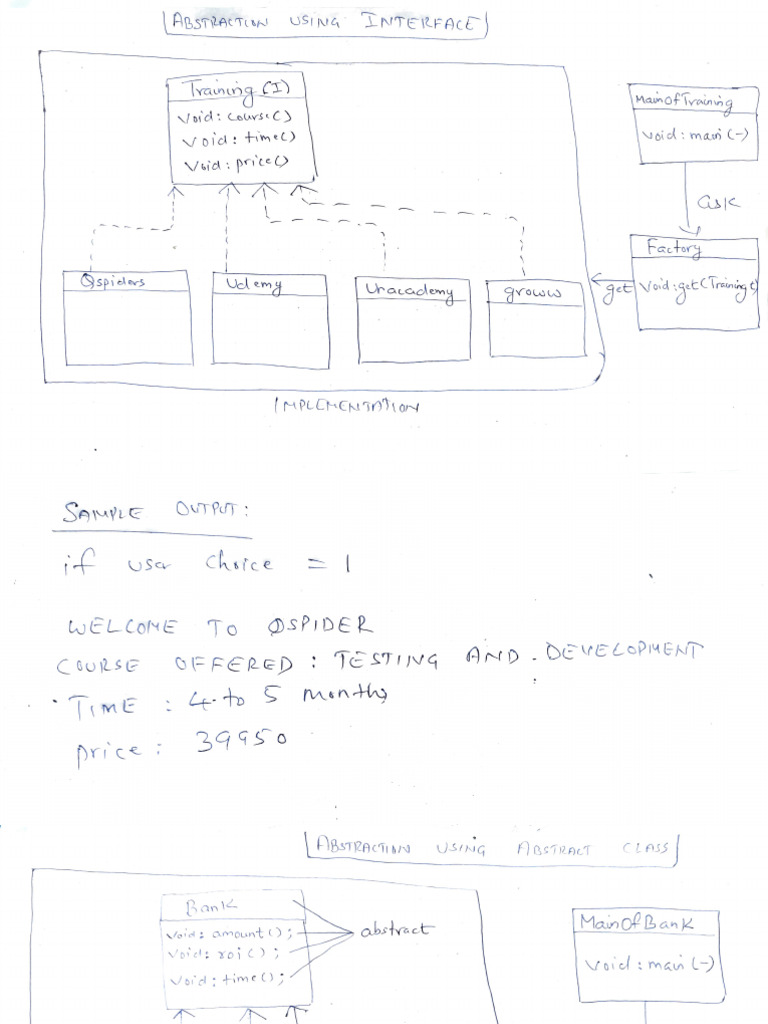 ABSTRACTION USING INTERFACE
Training (I)
void: course()
void: time()
void: price()
MainofTraining
void: main(-)
ask
Factory
void: get(Training t)
get
Qspiders
Udemy
Unacademy
groww
IMPLEMENTATION
SAMPLE OUTPUT:
if user choice = 1
WELCOME TO QSPIDER
COURSE OFFERED: TESTING AND DEVELOPMENT
TIME : 4 to 5 months
price: 39950
ABSTRACTION USING ABSTRACT CLASS
Bank
void: amount();
void: roi();
void: time();
abstract
MainOfBank
void: main(-)